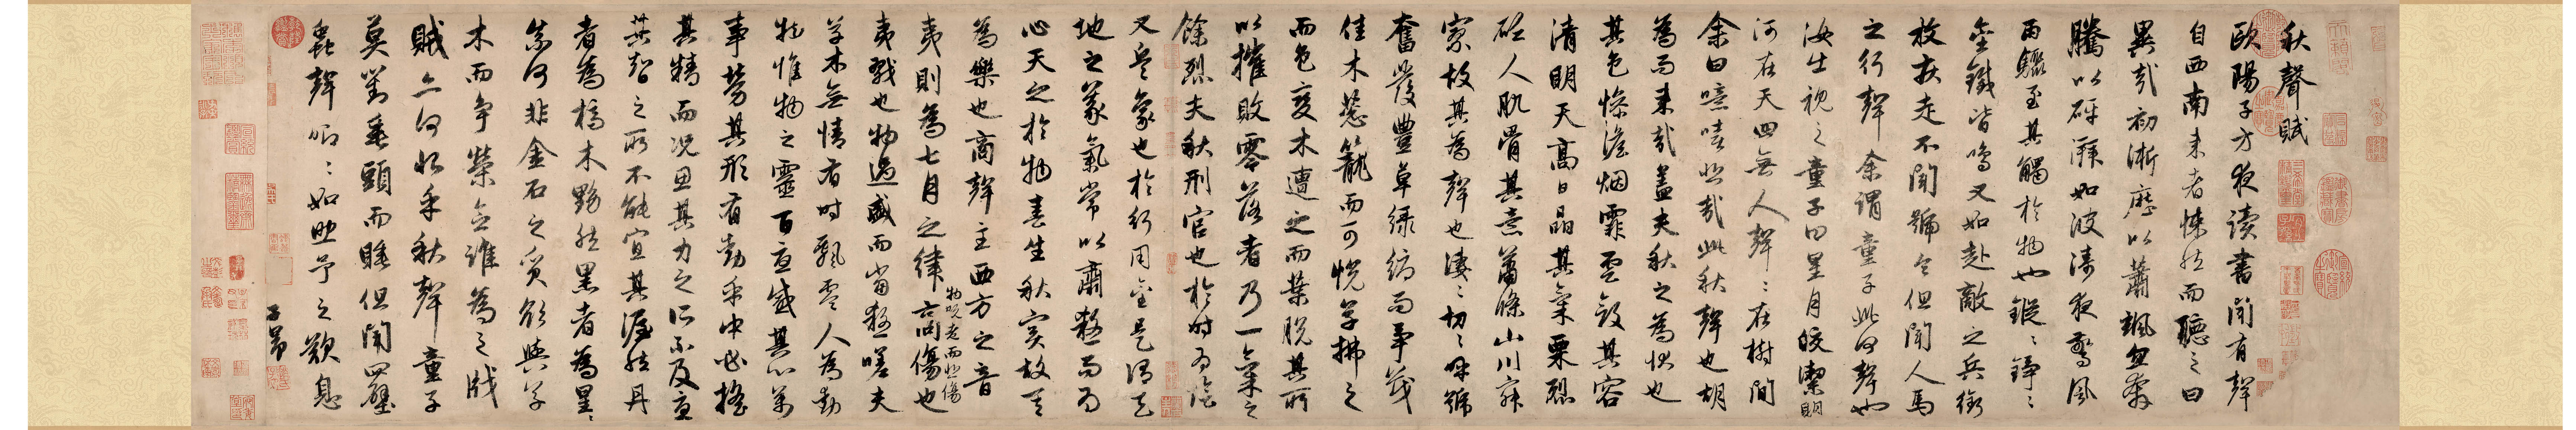 秋聲賦
歐陽子方夜讀書聞有聲
自西南来者悚然而聽之曰
異哉初淅瀝以蕭颯忽奔
騰以砰湃如波濤夜驚風
雨驟至其觸於物也鏦〻錚〻
金鐵皆鳴又如赴敵之兵銜
枚疾走不聞號令但聞人馬
之行聲余謂童子此何聲也
汝出視之童子曰星月皎潔明
河在天四無人聲〻在樹間
余曰噫嘻悲哉此秋聲也胡
為而来哉蓋夫秋之為狀也
其色惨澹烟霏雲斂其容
清明天高日晶其氣栗烈
砭人肌骨其意蕭條山川寂
寥故其為聲也淒〻切〻呼號
奮發豐草緑縟而爭茂
佳木葱蘢而可悅草拂之
而色變木遭之而葉脫其所
以摧敗零落者乃一氣之
餘烈夫秋刑官也於時為陰
又兵象也於行用金是謂天
地之義氣常以肅殺而為
心天之於物春生秋實故其
為樂也商聲主西方之音
夷則為七月之律商傷也
物既老而悲傷
夷戮也物過盛而當殺嗟夫
草木無情有時飄零人為動
物惟物之靈百憂感其心萬
事勞其形有動乎中必搖
其精而況思其力之所不及憂
其智之所不能宜其渥然丹
者為槁木黟然黑者為星〻
奈何非金石之質欲與草
木而爭榮念誰為之戕
賊亦何恨乎秋聲童子
莫對垂頭而睡但聞四壁
蟲聲唧〻如助予之歎息
子昂